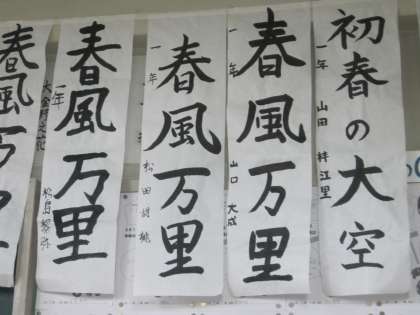 初春の大空
一年 山田 梓江里
春風万里
一年 山口 大成
春風万里
一年 松田
春風万里
一年 松島
春風万里